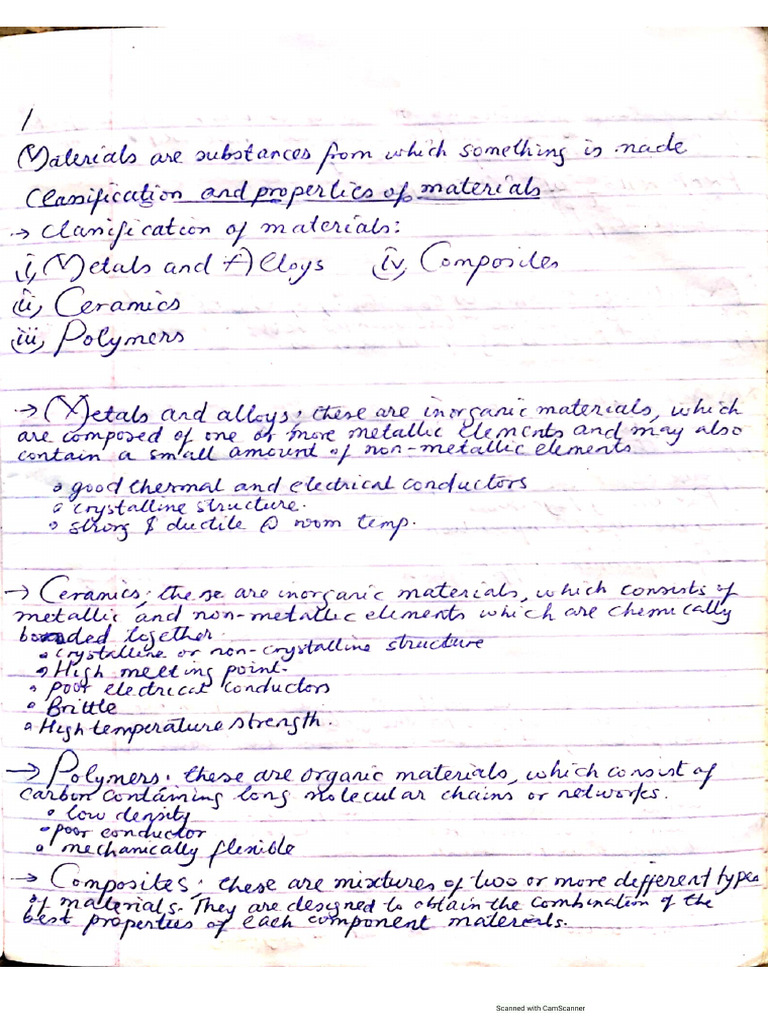 1
Materials are substances from which something is made
Classification and properties of materials
→ Classification of materials:
i, Metals and Alloys iv, Composites
ii, Ceramics
iii, Polymers
→ Metals and alloys; these are inorganic materials, which
are composed of one or more metallic elements and may also
contain a small amount of non-metallic elements
• good thermal and electrical conductors
• crystalline structure.
• strong & ductile @ room temp.
→ Ceramics; these are inorganic materials, which consists of
metallic and non-metallic elements which are chemically
bonded together.
• crystalline or non-crystalline structure
• High melting point.
• poor electrical conductors
• Brittle
• High temperature strength.
→ Polymers. these are organic materials, which consist of
carbon containing long molecular chains or networks.
• low density
• poor conductor
• mechanically flexible
→ Composites; these are mixtures of two or more different types
of materials. They are designed to obtain the combination of the
best properties of each component materials.
Scanned with CamScanner